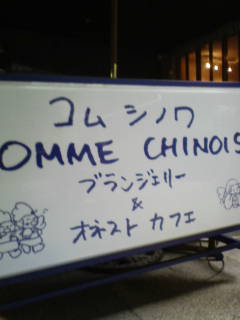 コム シノワ
OMME CHINOIS
ブランジェリー
&
オネスト カフェ